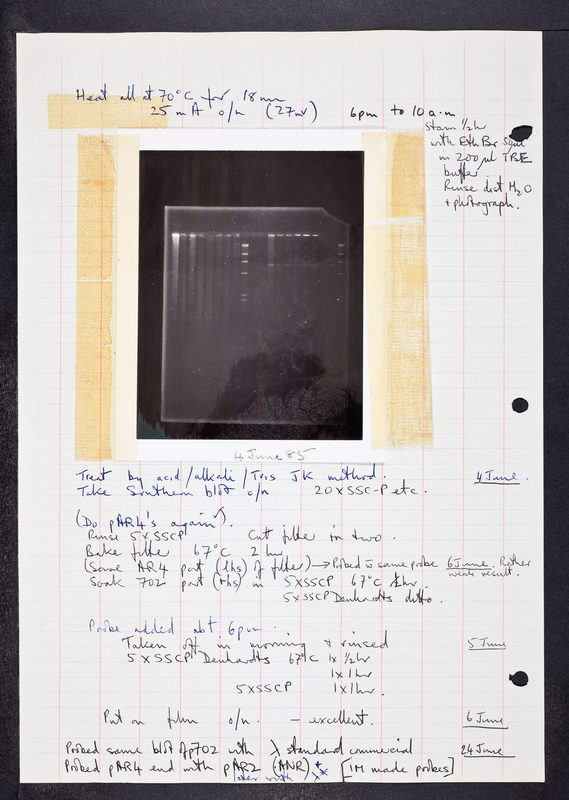 Heat all at 70°C for 18 min
25 mA o/n (27mV) 6pm to 10 a.m
Stain ½ hr
with Eth Br 5µl
in 200 µl TBE
buffer.
Rinse dist H₂O
+ photograph.
4. June 85
Treat by acid/alkali/Tris JK method. 4 June.
Take Southern blot o/n 20xSSC-P etc.
(Do pAR4's again).
Rinse 5xSSCP Cut filter in two.
Bake filter 67°C 2 hr
(Same AR4 part (lhs) of filter) → Probed w same probe 6 June. Rather
weak result.
Soak 702 part (rhs) in 5xSSCP 67°C ½hr.
5xSSCP Denhardts ditto.
Probe added abt 6pm.
Taken off in morning & rinsed 5 June
5 x SSCP Denhardts 67°C 1x ½hr
1x 1hr
5xSSCP 1x 1hr.
Put on film o/n. – excellent. 6 June
Probed same blot of p702 with λ standard commercial 24 June
Probed pAR4 end with pAR2 (ANR) * [IM made probes]
later with **